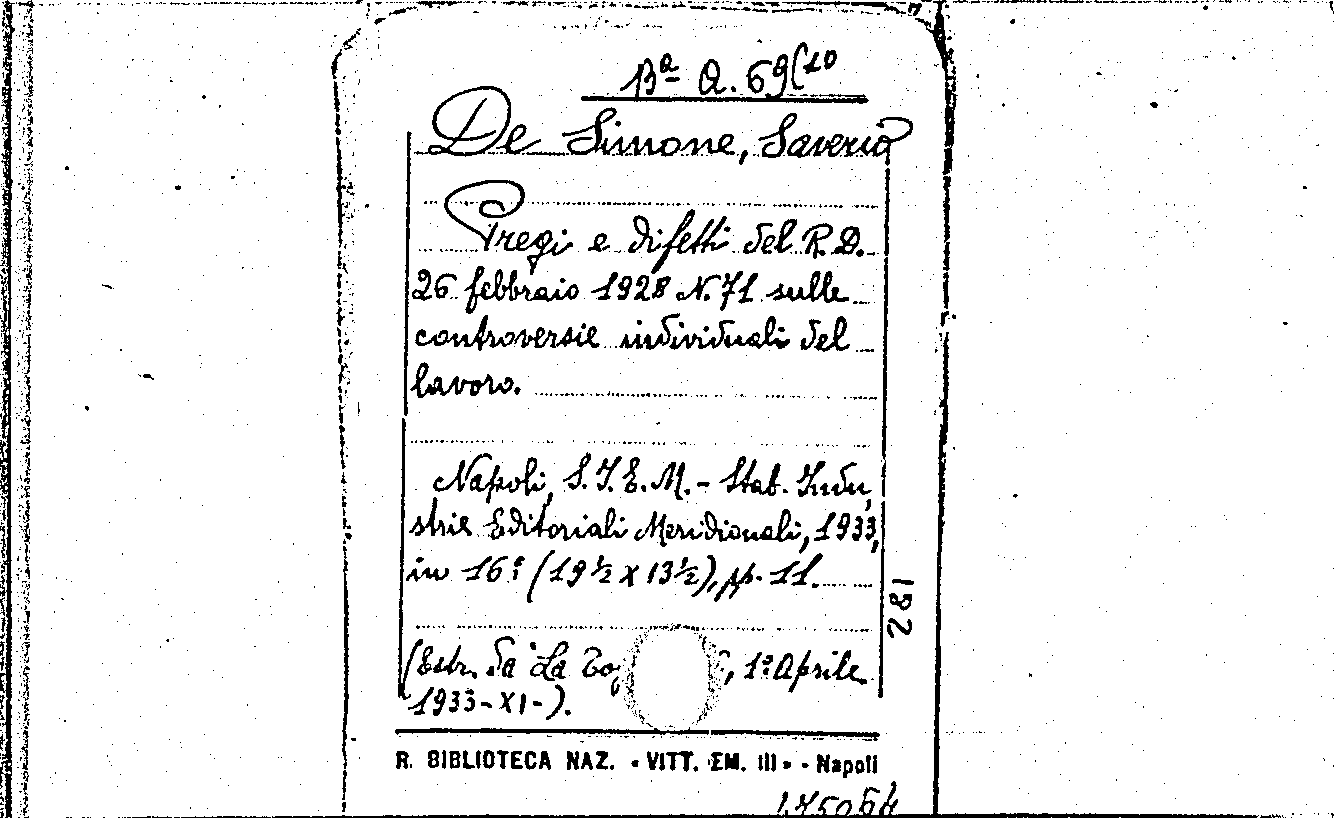 Bª Q. 69(10
De Simone, Saverio
Pregi e difetti del R. D.
26 febbraio 1928 N. 71 sulle
controversie individuali del
lavoro.
Napoli, S. I. E. M. - Stab. Indu,
strie Editoriali Meridionali, 1933,
in 16º (19½ x 13½), pp. 11.
(Estr. da "La , 1º Aprile
1933-XI-).
182
R. BIBLIOTECA NAZ. «VITT. EM. III» - Napoli